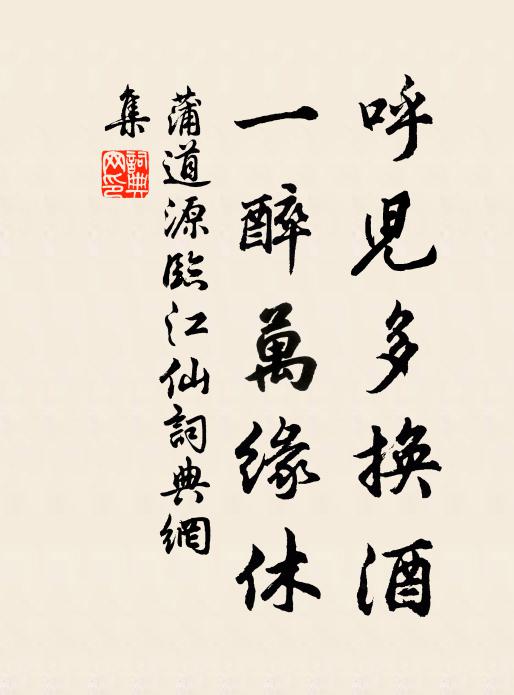 呼児多換酒
一醉萬緣休
蒲道源臨江仙詞典網
集
詞典網印